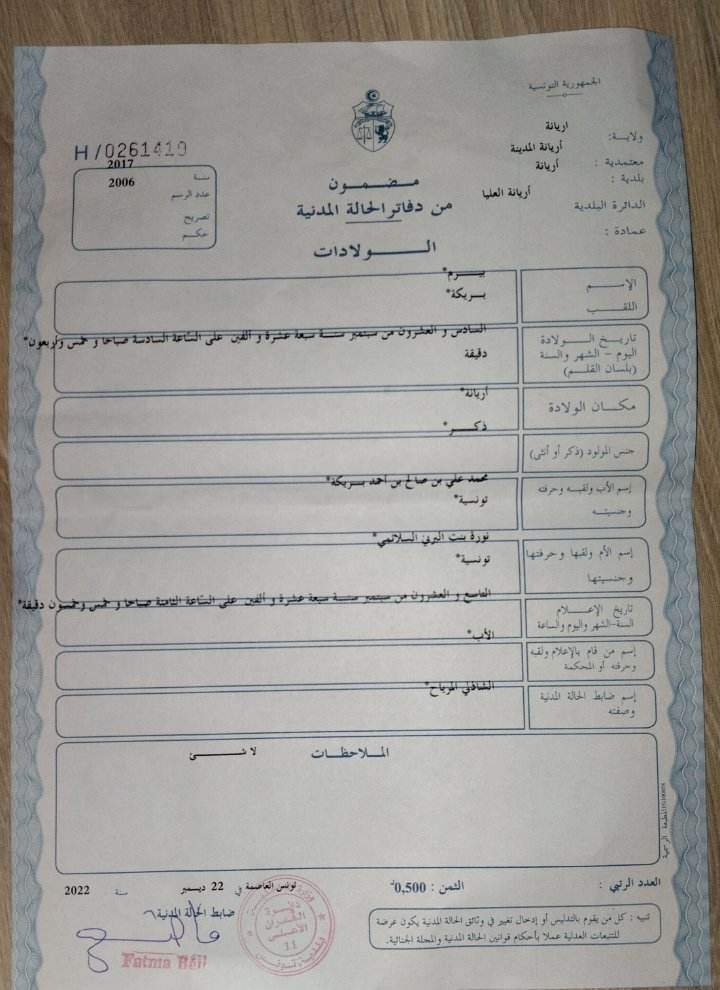 الجمهورية التونسية
ولاية: اريانة
معتمدية : أريانة المدينة
بلدية : أريانة
الدائرة البلدية أريانة العليا
عمادة :
H/0261419
سنة 2017
عدد الرسم 2006
تصريح
حكم
مضمون
من دفاتر الحالة المدنية
الولادات
الإسم بيرم*
اللقب بريكة*
تاريخ الولادة
اليوم - الشهر والسنة
(بلسان القلم)
السادس و العشرون من سبتمبر سنة سبعة عشرة و ألفين على الساعة السادسة صباحا و خمس وأربعون*
دقيقة
مكان الولادة أريانة*
جنس المولود (ذكر أو أنثى) ذكر*
إسم الأب ولقبه وحرفته
وجنسيته
محمد علي بن صالح بن احمد بريكة*
تونسية*
إسم الأم ولقبها وحرفتها
وجنسيتها
نورة بنت البرني السلامي*
تونسية*
تاريخ الإعلام
السنة-الشهر واليوم والساعة
التاسع و العشرون من سبتمبر سنة سبعة عشرة و ألفين على الساعة الثامنة صباحا و خمس وخمسون دقيقة*
إسم من قام بالإعلام ولقبه
وحرفته أو المحكمة
الأب*
إسم ضابط الحالة المدنية
وصفته
الشاذلي المرباح*
الملاحظات لا شئ
المطبعة الرسمية
العدد الرتبي :
الثمن : 0,500د
تونس العاصمة في 22 ديسمبر سنة 2022
ضابط الحالة المدنية
تنبيه : كل من يقوم بالتدليس أو إدخال تغيير في وثائق الحالة المدنية يكون عرضة
للتتبعات العدلية عملا بأحكام قوانين الحالة المدنية والمجلة الجنائية.
دائرة
11
Fatma Béji